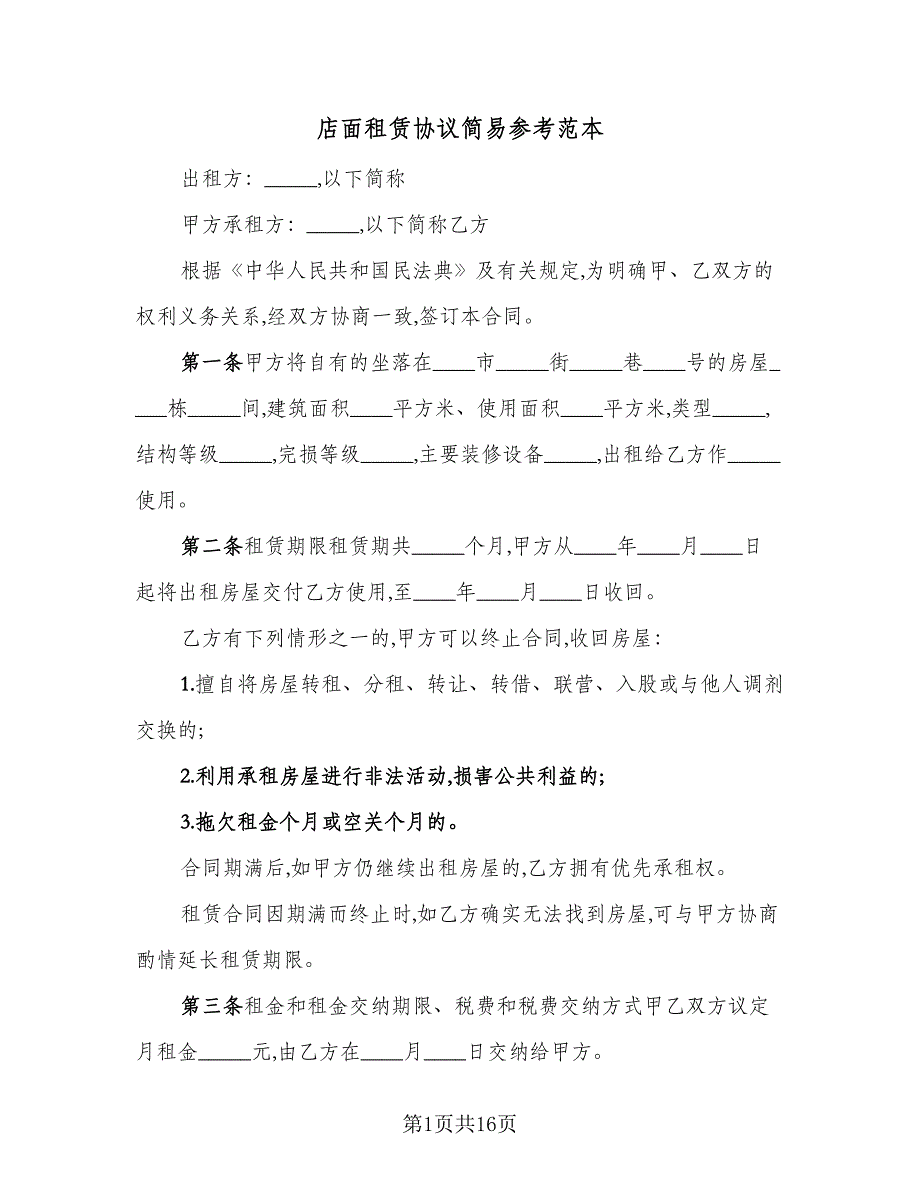 店面租赁协议简易参考范本
出租方：_____,以下简称
甲方承租方：_____,以下简称乙方
根据《中华人民共和国民法典》及有关规定,为明确甲、乙双方的
权利义务关系,经双方协商一致,签订本合同。
第一条甲方将自有的坐落在____市_____街_____巷____号的房屋_
___栋_____间,建筑面积____平方米、使用面积____平方米,类型_____,
结构等级_____,完损等级_____,主要装修设备_____,出租给乙方作_____
使用。
第二条租赁期限租赁期共_____个月,甲方从____年____月____日
起将出租房屋交付乙方使用,至____年____月____日收回。
乙方有下列情形之一的,甲方可以终止合同,收回房屋：
1.擅自将房屋转租、分租、转让、转借、联营、入股或与他人调剂
交换的;
2.利用承租房屋进行非法活动,损害公共利益的;
3.拖欠租金个月或空关个月的。
合同期满后,如甲方仍继续出租房屋的,乙方拥有优先承租权。
租赁合同因期满而终止时,如乙方确实无法找到房屋,可与甲方协商
酌情延长租赁期限。
第三条租金和租金交纳期限、税费和税费交纳方式甲乙双方议定
月租金_____元,由乙方在____月____日交纳给甲方。
第1页共16页